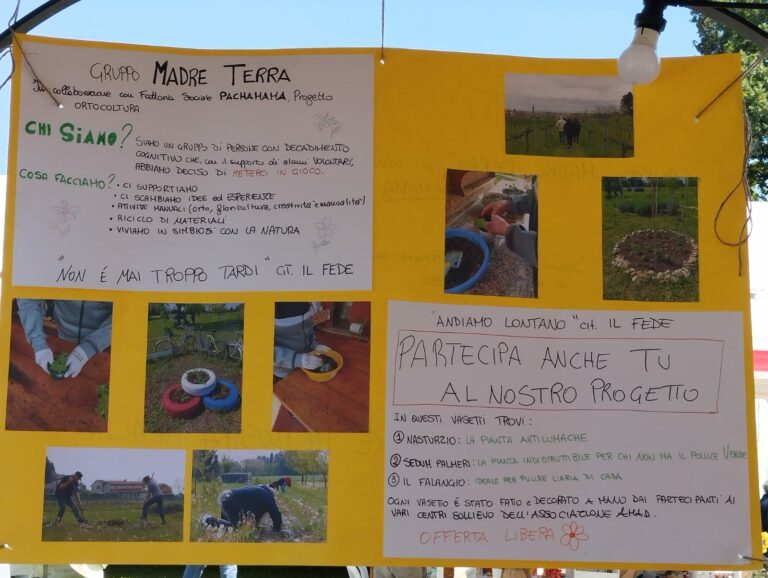 GRUPPO MADRE TERRA
In collaborazione con Fattoria Sociale PACHAMAMA, Progetto
ORTOCOLTURA
CHI SIAMO? SIAMO UN GRUPPO DI PERSONE CON DECADIMENTO
COGNITIVO CHE, con il supporto di alcuni VOLONTARI,
ABBIAMO DECISO DI METTERCI IN GIOCO.
COSA FACCIAMO? • CI SUPPORTIAMO
• CI SCAMBIAMO IDEE ed ESPERIENZE
• ATTIVITÀ MANUALI (orto, floricultura, creatività e manualità)
• RICICLO DI MATERIALI
• VIVIAMO IN SIMBIOSI CON LA NATURA
"NON É MAI TROPPO TARDI" CIT. IL FEDE
"ANDIAMO LONTANO" cit. IL FEDE
PARTECIPA ANCHE TU
AL NOSTRO PROGETTO
IN QUESTI VASETTI TROVI:
① NASTURZIO: LA PIANTA ANTILUMACHE
② SEDUM PALMERI: LA PIANTA INDISTRUTTIBILE PER CHI NON HA IL POLLICE VERDE
③ IL FALANGIO: IDEALE PER PULIRE L'ARIA DI CASA
OGNI VASETTO É STATO FATTO e DECORATO A MANO DAI PARTECIPANTI AI
VARI CENTRI SOLLIEVO DELL'ASSOCIAZIONE AMAD.
OFFERTA LIBERA